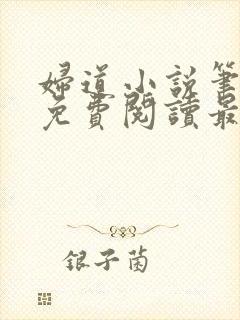 婦道小説筆
免費閱讀最
銀子菌